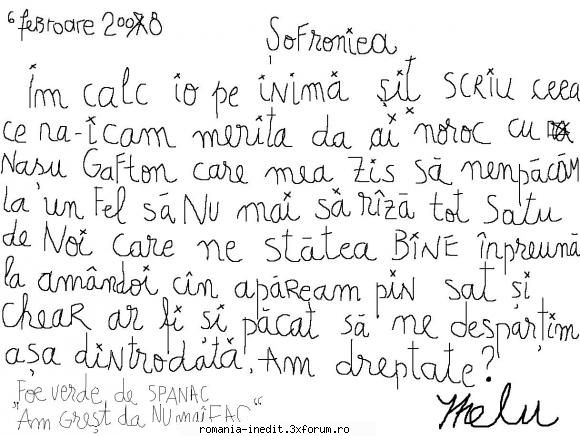 6 febroare 2008
Sofronica
Îm calc io pe inimă șiț scriu ceea
ce na-icam merita da ai noroc cu
Nașu Gafton care mea zis să nenpăcăm
la un fel să nu mai să rîză tot satu
de noi care ne stătea BINE înpreună
la amândoi cîn apăream pin sat și
chear ar fi și păcat să ne despărțim
așa dintrodată. Am dreptate?
Foe verde de SPANAC
"Am greșt da nu mai FAC"
Melu
romania-inedit.3xforum.ro